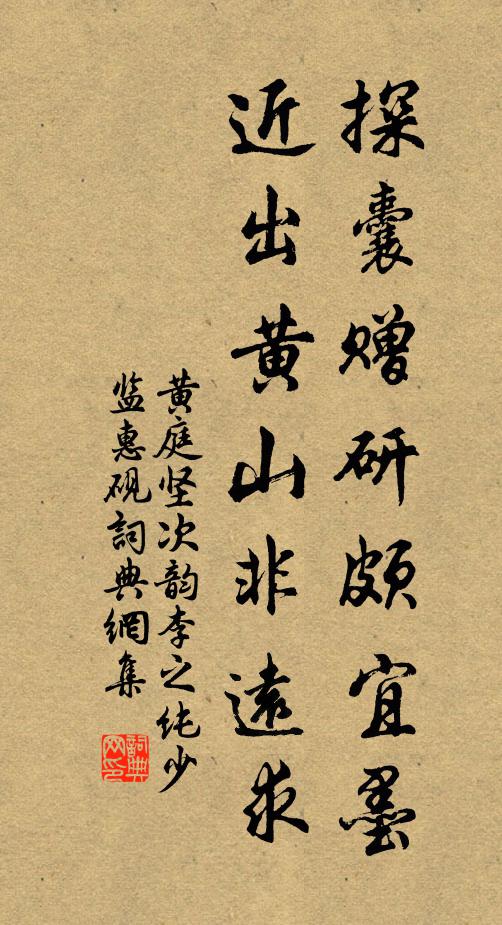 探囊赠研颇宜墨
近出黄山非遠求
黄庭坚次韵李之纯少
监惠砚詞典網集
詞典网印